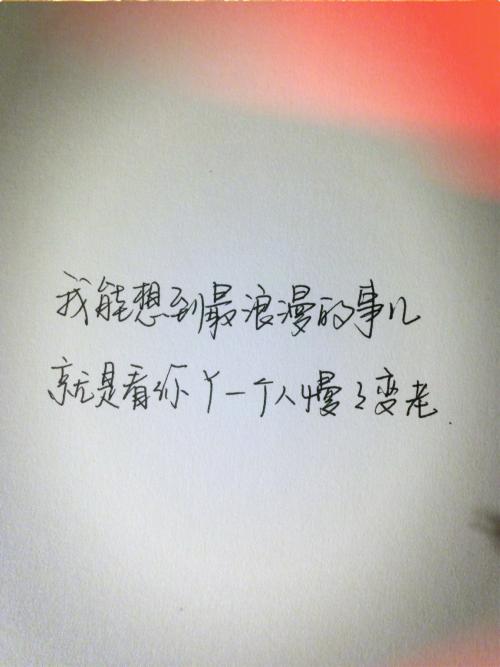 我能想到最浪漫的事儿
就是看你丫一个人慢々变老.